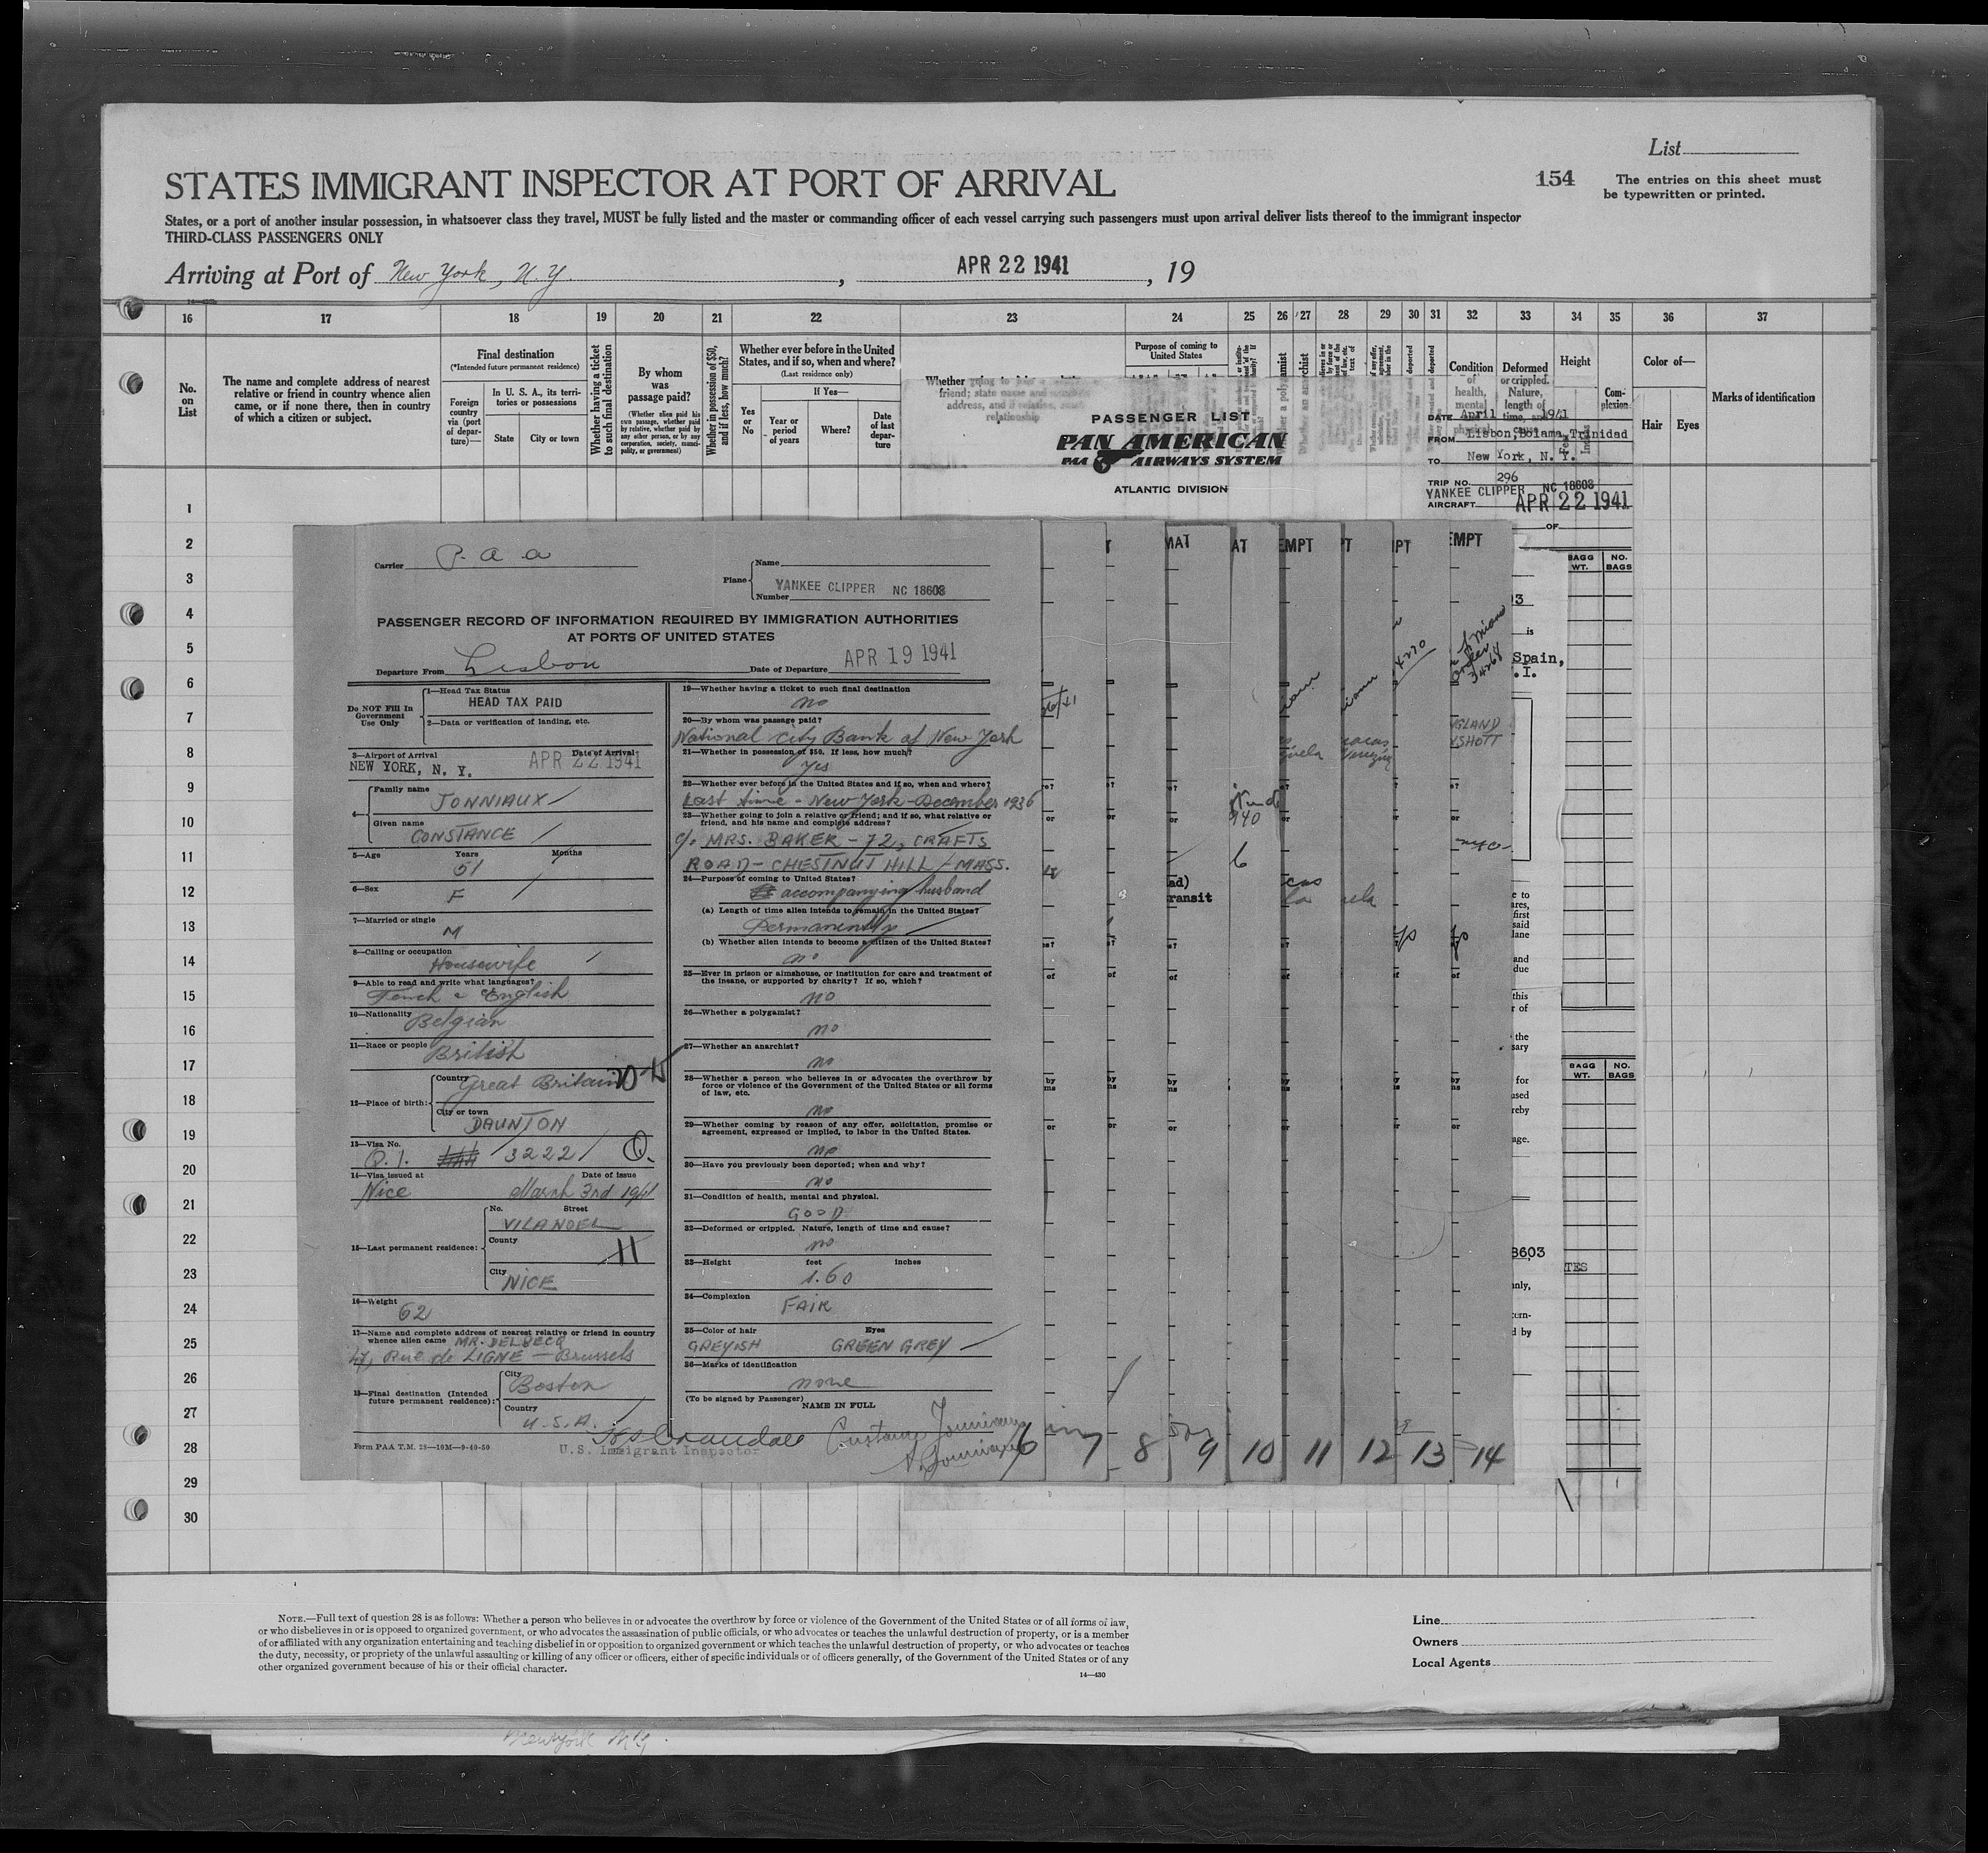 List
STATES IMMIGRANT INSPECTOR AT PORT OF ARRIVAL
154
The entries on this sheet must
be typewritten or printed.
States, or a port of another insular possession, in whatsoever class they travel, MUST be fully listed and the master or commanding officer of each vessel carrying such passengers must upon arrival deliver lists thereof to the immigrant inspector
THIRD-CLASS PASSENGERS ONLY
Arriving at Port of New York, N.Y. , APR 22 1941 , 19
16 17 18 19 20 21 22 23 24 25 26 27 28 29 30 31 32 33 34 35 36 37
No. on List
The name and complete address of nearest
relative or friend in country whence alien
came, or if none there, then in country
of which a citizen or subject.
Final destination
(*Intended future permanent residence)
Foreign country via (port of departure)—
In U. S. A., its territories or possessions
State
City or town
Whether having a ticket to such final destination
By whom was passage paid?
(Whether alien paid his own passage, whether paid by relative, whether paid by any other person, or by any corporation, society, municipality, or government)
Whether in possession of $50, and if less, how much?
Whether ever before in the United
States, and if so, when and where?
(Last residence only)
If Yes—
Yes or No
Year or period of years
Where?
Date of last departure
Whether going to join a
friend; state name and
address, and if relative,
relationship
Purpose of coming to
United States
Condition of health, mental
Deformed or crippled. Nature, length of time, and cause
Height
Complexion
Color of—
Hair
Eyes
Marks of identification
PASSENGER LIST
PAN AMERICAN
PAA AIRWAYS SYSTEM
ATLANTIC DIVISION
DATE April 1941
FROM Lisbon, Bolama, Trinidad
TO New York, N. Y.
TRIP NO. 296
YANKEE CLIPPER NC 18603
AIRCRAFT APR 22 1941
OF
BAGG WT.
NO. BAGS
1
2
3
4
5
6
7
8
9
10
11
12
13
14
15
16
17
18
19
20
21
22
23
24
25
26
27
28
29
30
Carrier P. a a
Plane Name
Number YANKEE CLIPPER NC 18603
PASSENGER RECORD OF INFORMATION REQUIRED BY IMMIGRATION AUTHORITIES
AT PORTS OF UNITED STATES
Departure From Lisbon Date of Departure APR 19 1941
Do NOT Fill In
Government
Use Only
1—Head Tax Status
HEAD TAX PAID
2—Data or verification of landing, etc.
3—Airport of Arrival Date of Arrival
NEW YORK, N. Y. APR 22 1941
4— Family name
JONNIAUX
Given name
CONSTANCE
5—Age Years Months
51
6—Sex
F
7—Married or single
M
8—Calling or occupation
Housewife
9—Able to read and write what languages?
French & English
10—Nationality
Belgian
11—Race or people
British
12—Place of birth: Country
Great Britain
City or town
DAUNTON
13—Visa No.
Q. 1. 3222 Q.
14—Visa issued at Date of issue
Nice March 3rd 1941
15—Last permanent residence: No. Street
VILA NOEL
County
City
NICE
16—Weight
62
17—Name and complete address of nearest relative or friend in country
whence alien came MR. DELBECQ
47, Rue de LIGNE — Brussels
18—Final destination (Intended
future permanent residence): City
Boston
Country
U.S.A.
Form PAA T.M. 25—10M—9-40-50
U.S. Immigrant Inspector
19—Whether having a ticket to such final destination
no
20—By whom was passage paid?
National City Bank of New York
21—Whether in possession of $50. If less, how much?
Yes
22—Whether ever before in the United States and if so, when and where?
Last time - New York - December 1936
23—Whether going to join a relative or friend; and if so, what relative or
friend, and his name and complete address?
c/o MRS. BAKER - 72, CRAFTS
ROAD - CHESTNUT HILL - MASS.
24—Purpose of coming to United States?
accompanying husband
(a) Length of time alien intends to remain in the United States?
Permanently
(b) Whether alien intends to become a citizen of the United States?
no
25—Ever in prison or almshouse, or institution for care and treatment of
the insane, or supported by charity? If so, which?
no
26—Whether a polygamist?
no
27—Whether an anarchist?
no
28—Whether a person who believes in or advocates the overthrow by
force or violence of the Government of the United States or all forms
of law, etc.
no
29—Whether coming by reason of any offer, solicitation, promise or
agreement, expressed or implied, to labor in the United States.
no
30—Have you previously been deported; when and why?
no
31—Condition of health, mental and physical.
GOOD
32—Deformed or crippled. Nature, length of time and cause?
no
33—Height feet inches
1.60
34—Complexion
FAIR
35—Color of hair Eyes
GREYISH GREEN GREY
36—Marks of identification
none
(To be signed by Passenger)
NAME IN FULL
Constance Jonniaux
6 7 8 9 10 11 12 13 14
NOTE.—Full text of question 28 is as follows: Whether a person who believes in or advocates the overthrow by force or violence of the Government of the United States or of all forms of law,
or who disbelieves in or is opposed to organized government, or who advocates the assassination of public officials, or who advocates or teaches the unlawful destruction of property, or is a member
of or affiliated with any organization entertaining and teaching disbelief in or opposition to organized government or which teaches the unlawful destruction of property, or who advocates or teaches
the duty, necessity, or propriety of the unlawful assaulting or killing of any officer or officers, either of specific individuals or of officers generally, of the Government of the United States or of any
other organized government because of his or their official character.
14—430
Line
Owners
Local Agents